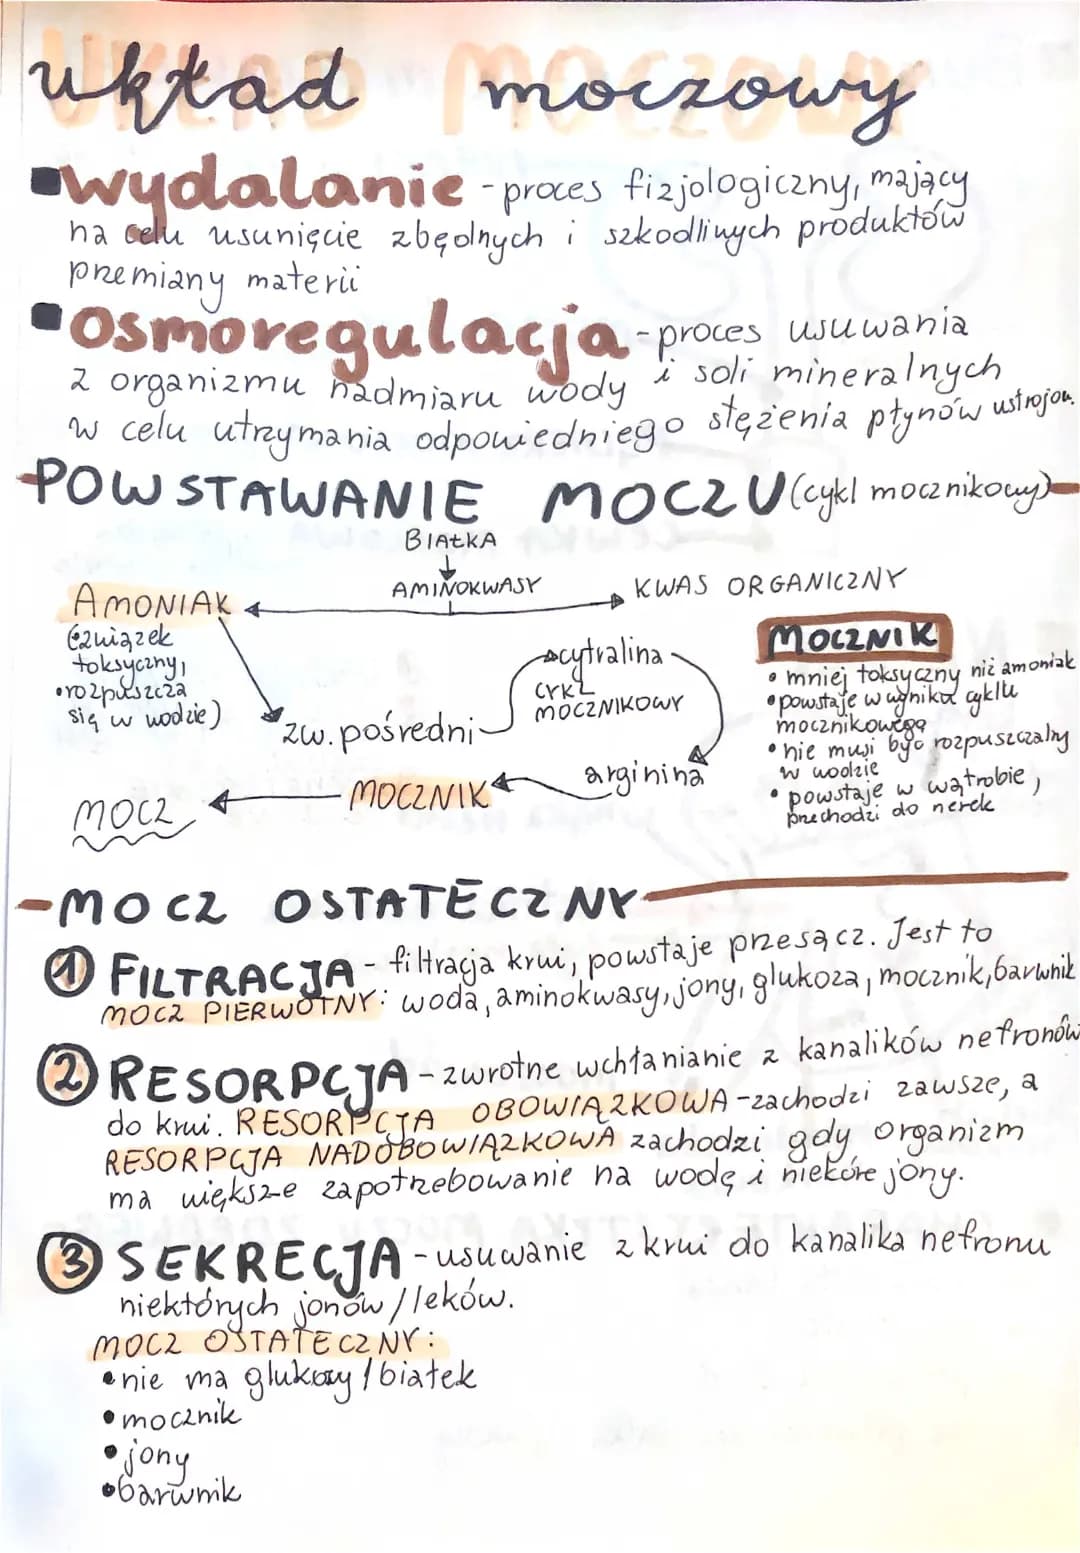 układ moczowy
wydalanie - proces fizjologiczny, mający
na celu usunięcie zbędnych i szkodliwych produktów
przemiany materii
osmoregulacja - proces usuwania
z organizmu nadmiaru wody i soli mineralnych
w celu utrzymania odpowiedniego stężenia płynów ustrojow.
POWSTAWANIE MOCZU (cykl mocznikowy)
BIAŁKA
AMINOKWASY
AMONIAK
KWAS ORGANICZNY
(związek
toksyczny,
•rozpuszcza
się w wodzie)
zw. pośredni
cytralina
CYKL
MOCZNIKOWY
arginina
MOCZNIK
MOCZ
MOCZNIK
• mniej toksyczny niż amoniak
• powstaje w wyniku cyklu
mocznikowego
• nie musi być rozpuszczalny
w wodzie
• powstaje w wątrobie,
przechodzi do nerek
MOCZ OSTATECZNY
1 FILTRACJA - filtracja krwi, powstaje przesącz. Jest to
MOCZ PIERWOTNY: woda, aminokwasy, jony, glukoza, mocznik, barwnik
2 RESORPCJA - zwrotne wchłanianie z kanalików nefronów
do krwi. RESORPCJA OBOWIĄZKOWA - zachodzi zawsze, a
RESORPCJA NADOBOWIĄZKOWA zachodzi gdy organizm
ma większe zapotrzebowanie na wodę i niekóre jony.
3 SEKRECJA - usuwanie z krwi do kanalika nefronu
niektórych jonów / leków.
MOCZ OSTATECZNY:
• nie ma glukozy / białek
• mocznik
• jony
• barwnik